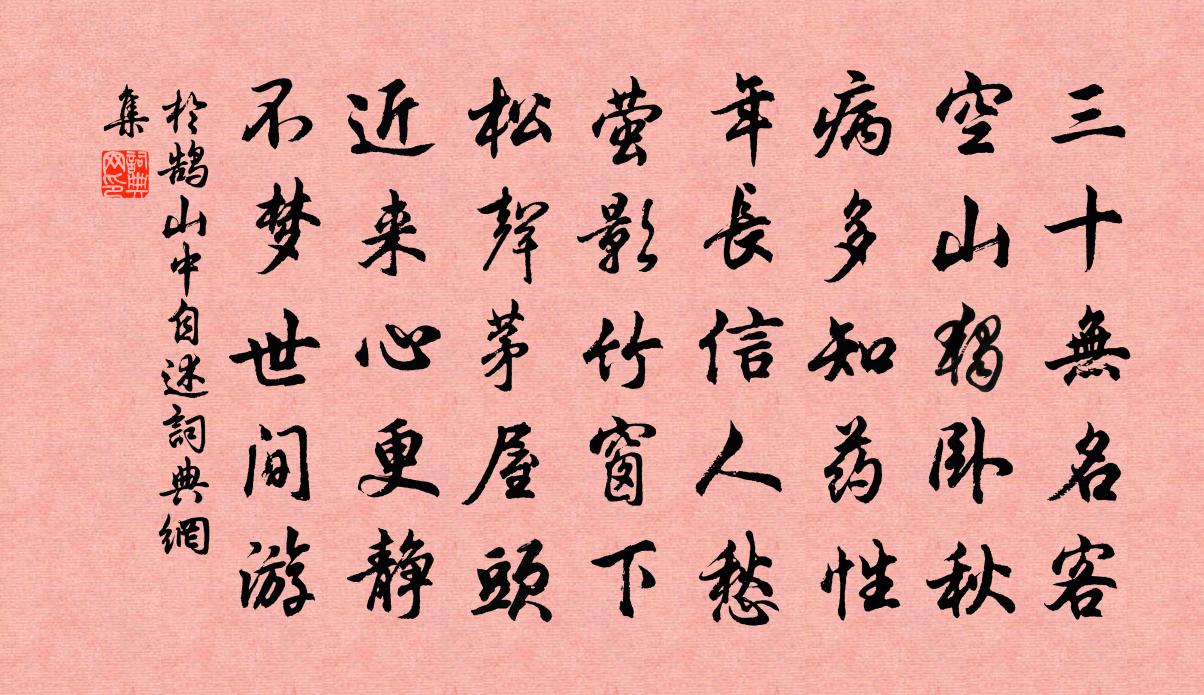 三十無名客
空山獨卧秋
病多知药性
年長信人愁
萤影竹窗下
松聲茅屋頭
近来心更静
不梦世间游
於鵠山中自述詞典網
集
詞典网印